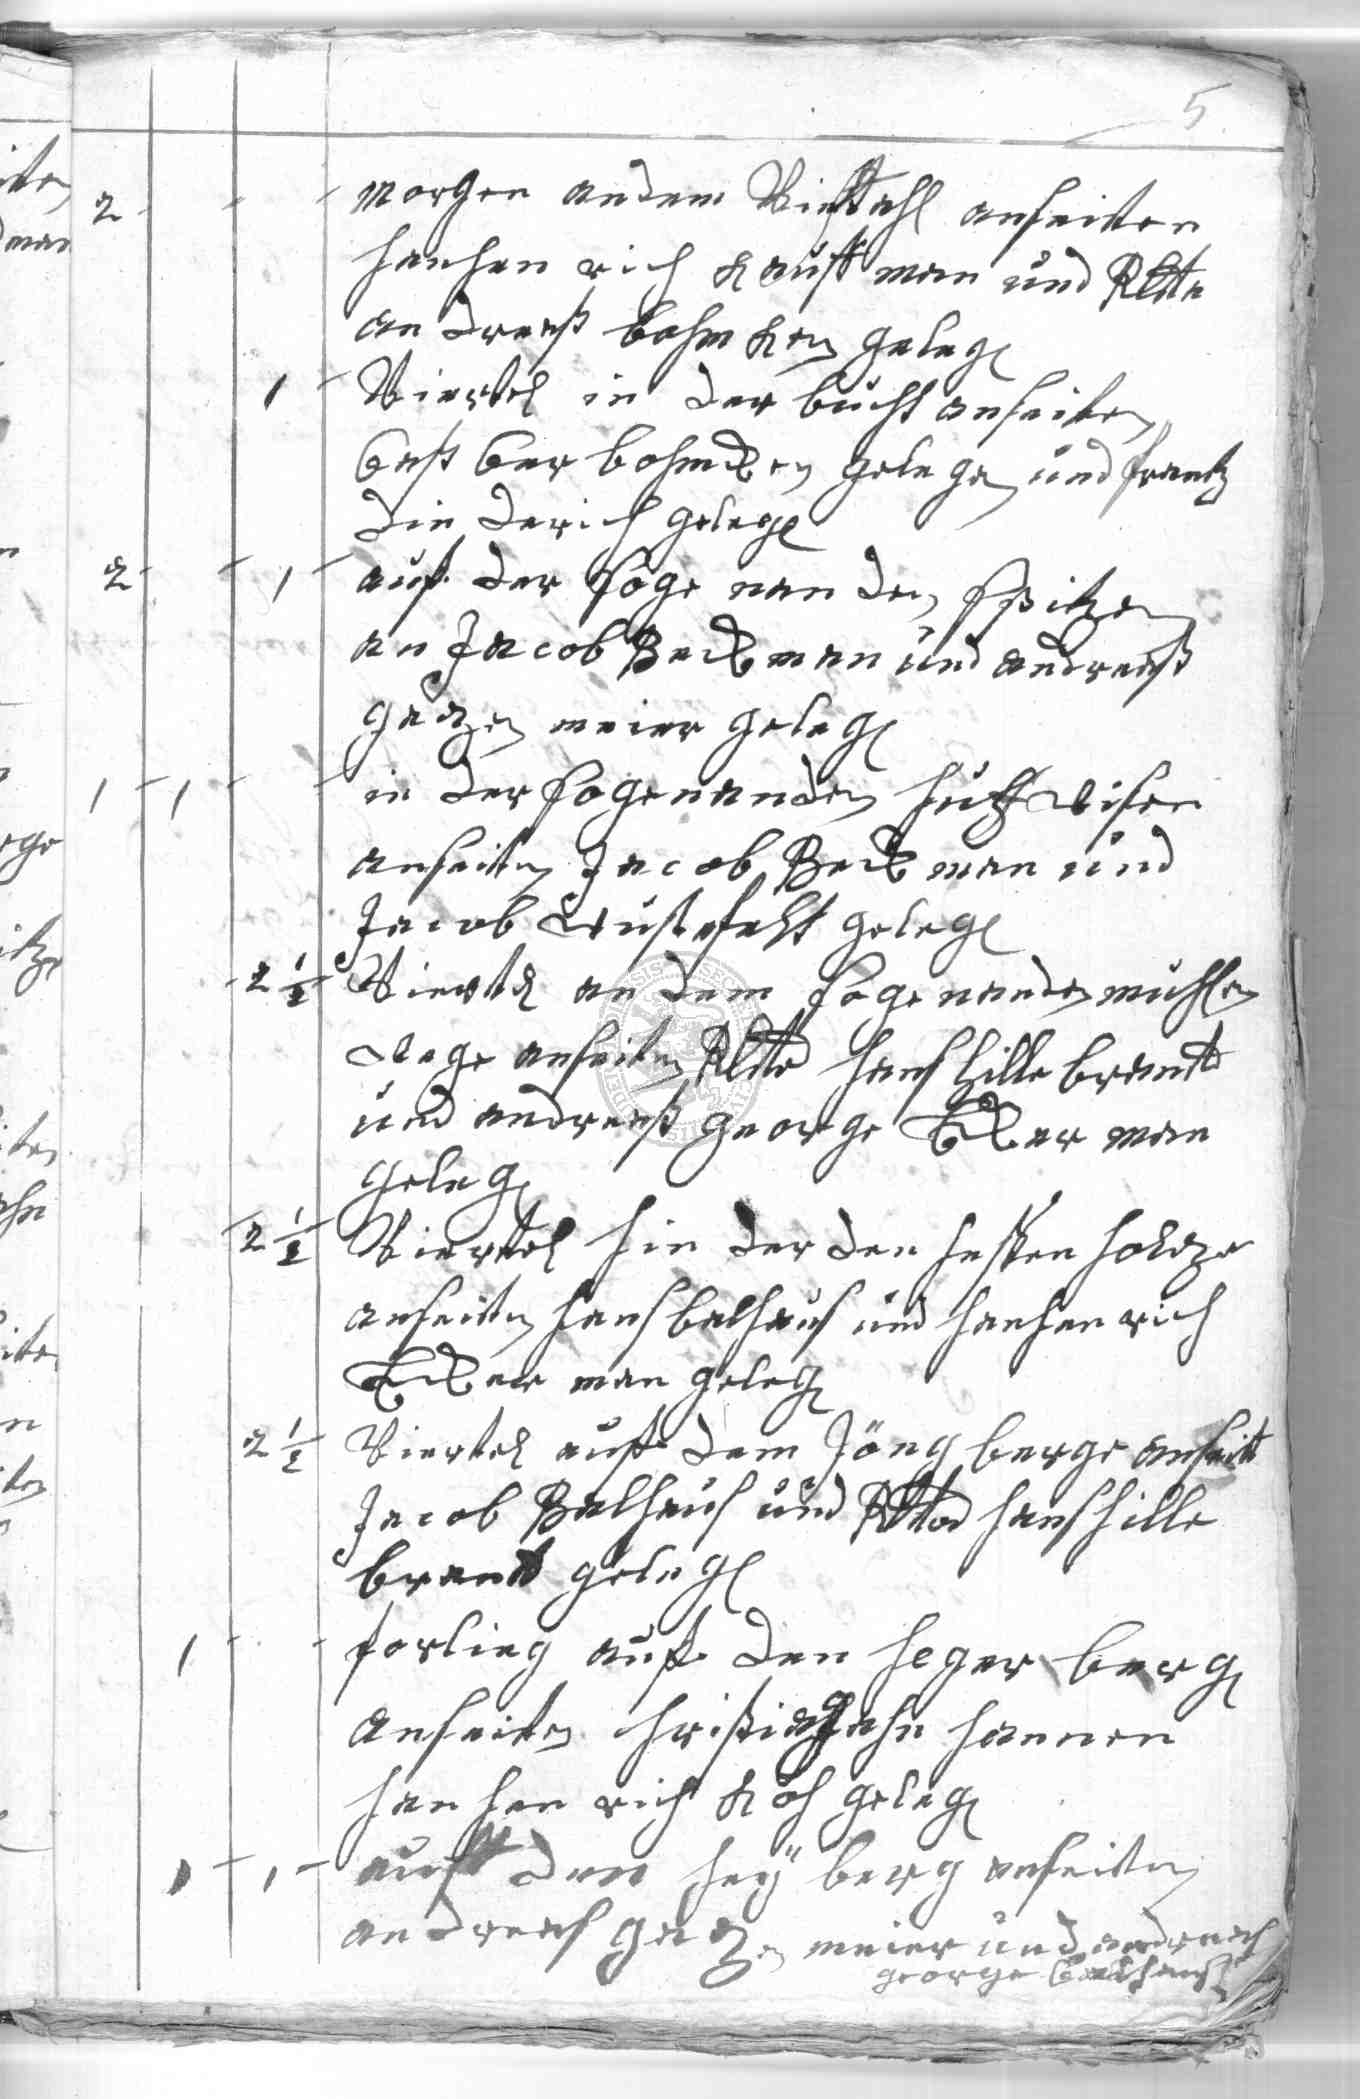 5
2 - - morgen an dem Viettahl anseitten
hanhen rich Kauffman und Rltte
an dreaß bohm Ken geleg
1 Viertel in der bucht anseiten
Casber bohmcken gelegen und frantz
die derich gelege
2 - - 1 - auf der soge nan den spitzen
an Jacob Beckman und andreaß
gatzen meier geleg
1 - 1 - - in der sogenanden hutz wisen
anseiten Jacob Beckman und
Jacob Wustefelt geleg
- 2 1/2 Viertel an dem sogenanden muhlen
wege anseiten Rltto hans hille brandt
und andreaß george Ecker man
geleg
2 1/2 Viertel hin der den hessen holtze
anseiten hans balhaus und hanhen rich
Ecker man geleg
2 1/2 Viertel auf dem Jöng berge anseit
Jacob Balhaus und hans hille
brandt geleg
1 - - forling auf den heger berg
anseiten hristian Jahn hannen
han hen rich Koh geleg
1 - 1 - auff den heÿ berg anseiten
andreas gatzen meier und andreas
george balhaus